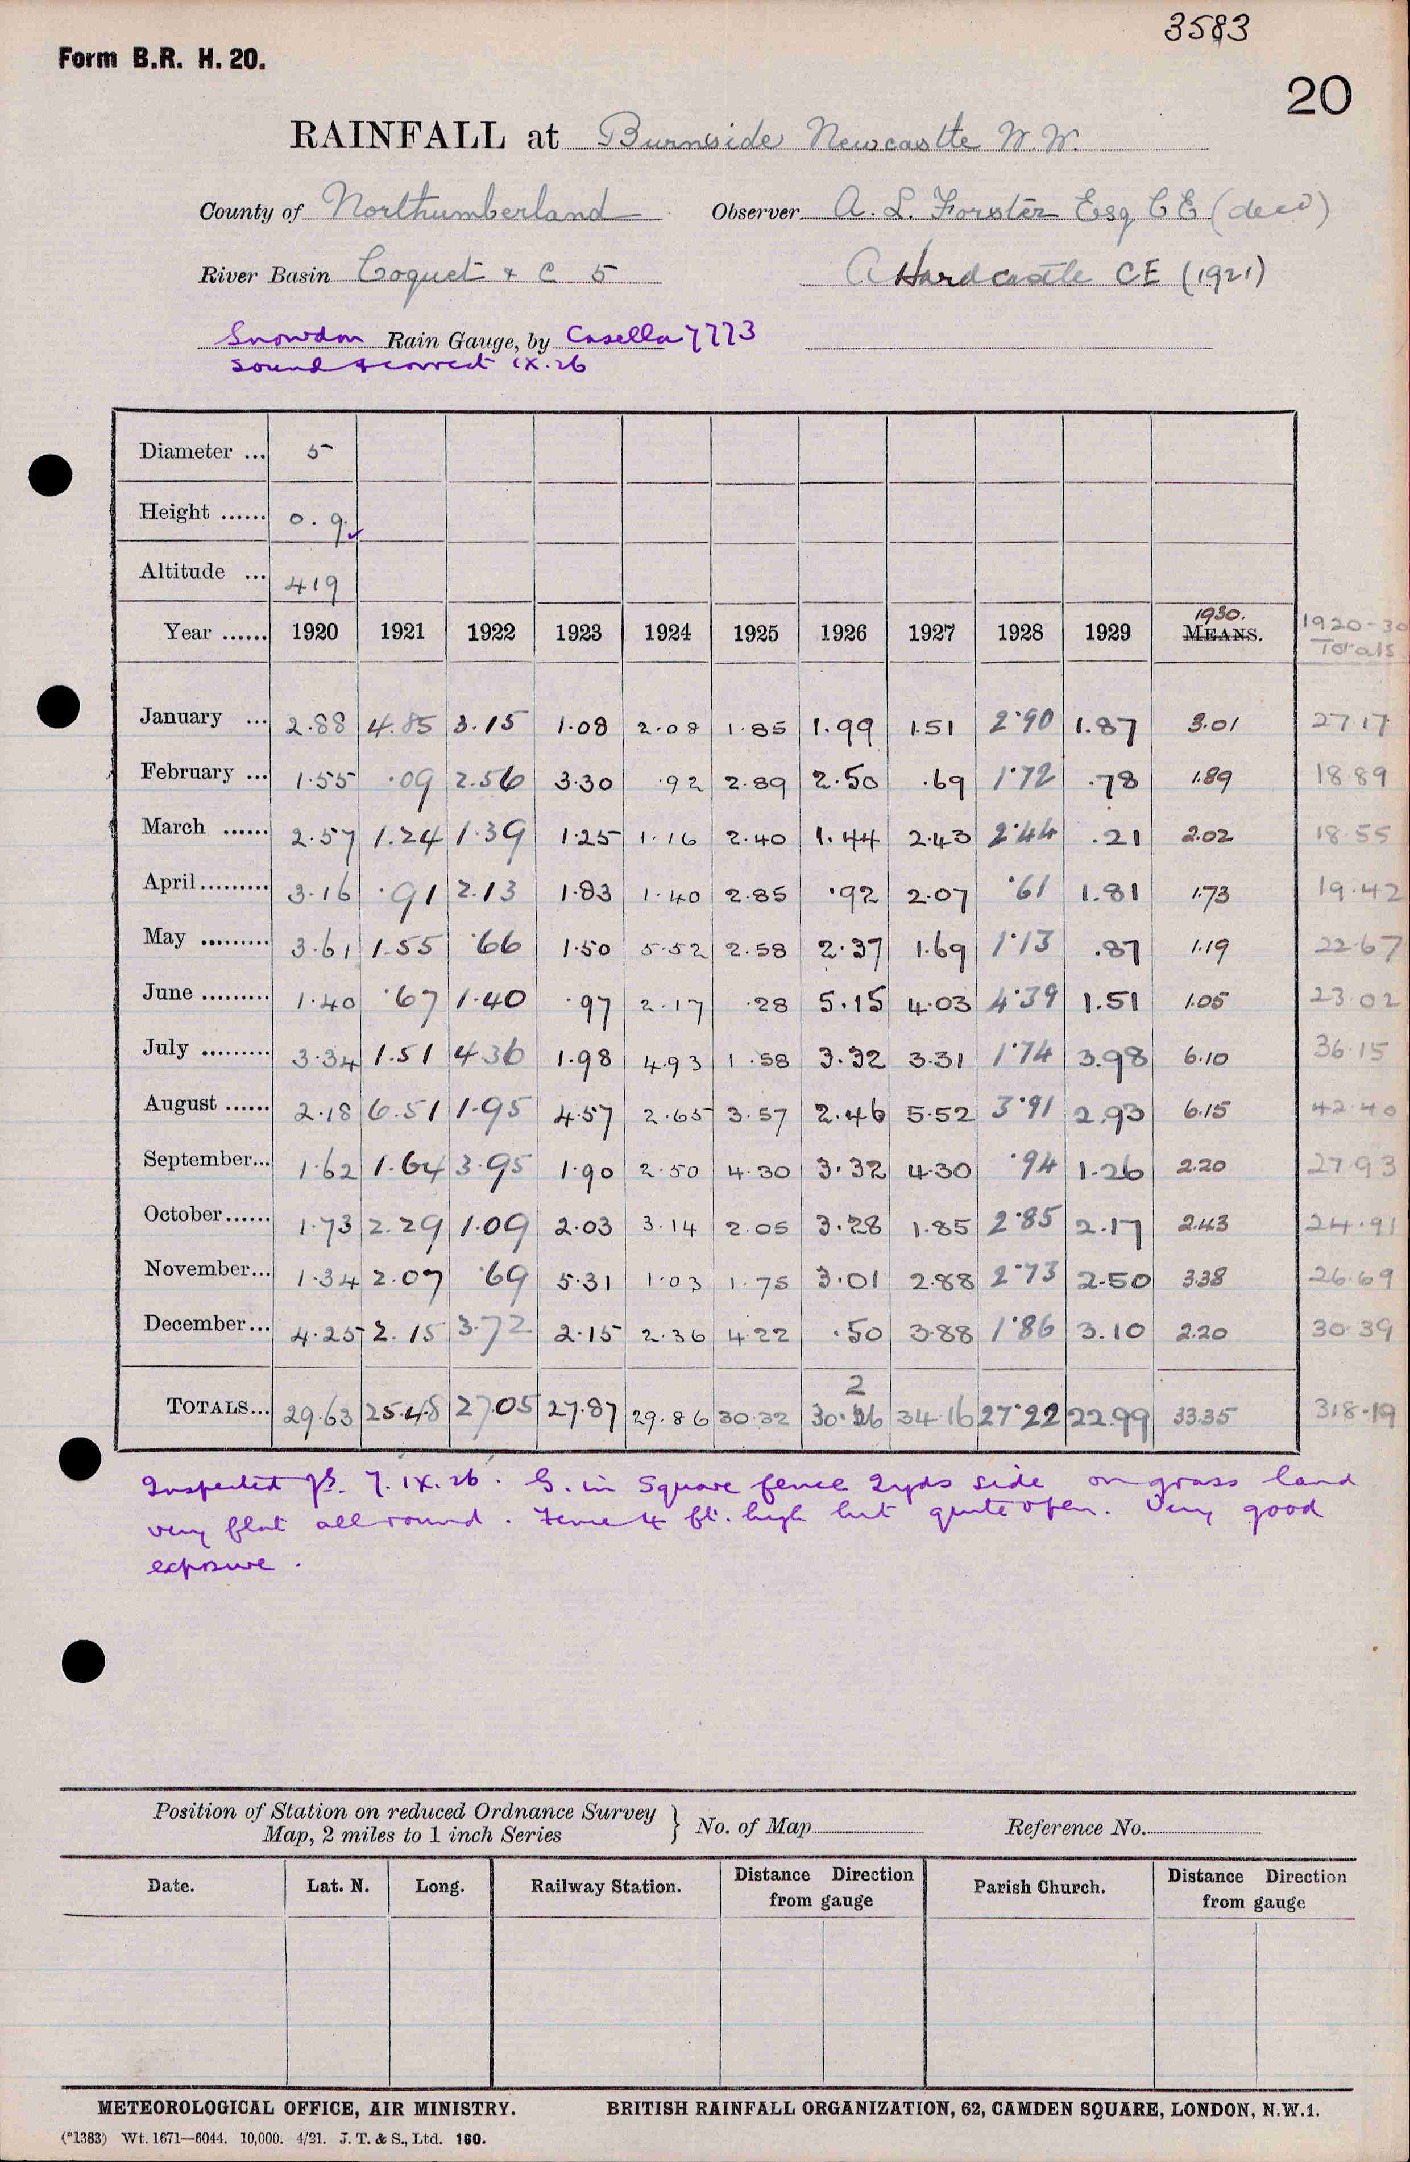 3583
Form B.R. H. 20.
20
RAINFALL at Burnside Newcastle W. W.
County of Northumberland Observer A. L. Forster Esq CE (decd)
River Basin Coquet & C 5 A Hardcastle CE (1921)
Snowdon Rain Gauge, by Casella 7773
sound & correct IX.26
Diameter ... 5
Height ...... 0.9
Altitude ... 419
Year ...... 1920 1921 1922 1923 1924 1925 1926 1927 1928 1929 1930. MEANS. 1920-30 Totals
January ... 2.88 4.85 3.15 1.08 2.08 1.85 1.99 1.51 2.90 1.87 3.01 27.17
February ... 1.55 .09 2.56 3.30 .92 2.89 2.50 .69 1.72 .78 1.89 18.89
March ...... 2.57 1.24 1.39 1.25 1.16 2.40 1.44 2.43 2.44 .21 2.02 18.55
April ......... 3.16 .91 2.13 1.83 1.40 2.85 .92 2.07 .61 1.81 1.73 19.42
May ......... 3.61 1.55 .66 1.50 5.52 2.58 2.37 1.69 1.13 .87 1.19 22.67
June ......... 1.40 .67 1.40 .97 2.17 .28 5.15 4.03 4.39 1.51 1.05 23.02
July ......... 3.34 1.51 4.36 1.98 4.93 1.58 3.32 3.31 1.74 3.98 6.10 36.15
August ...... 2.18 6.51 1.95 4.57 2.65 3.57 2.46 5.52 3.91 2.93 6.15 42.40
September... 1.62 1.64 3.95 1.90 2.50 4.30 3.32 4.30 .94 1.26 2.20 27.93
October...... 1.73 2.29 1.09 2.03 3.14 2.05 3.28 1.85 2.85 2.17 2.43 24.91
November... 1.34 2.07 .69 5.31 1.03 1.75 3.01 2.88 2.73 2.50 3.38 26.69
December... 4.25 2.15 3.72 2.15 2.36 4.22 .50 3.88 1.86 3.10 2.20 30.39
2
TOTALS... 29.63 25.48 27.05 27.87 29.86 30.32 30.26 34.16 27.22 22.99 33.35 318.19
Inspected 7.IX.26. G. in Square fence 2 yds side on grass land
very flat all round. Fence 4 ft. high but quite open. Very good
exposure.
Position of Station on reduced Ordnance Survey Map, 2 miles to 1 inch Series } No. of Map Reference No.
Date. Lat. N. Long. Railway Station. Distance Direction from gauge Parish Church. Distance Direction from gauge
METEOROLOGICAL OFFICE, AIR MINISTRY. BRITISH RAINFALL ORGANIZATION, 62, CAMDEN SQUARE, LONDON, N.W.1.
(*1383) Wt. 1671—6044. 10,000. 4/21. J. T. & S., Ltd. 160.